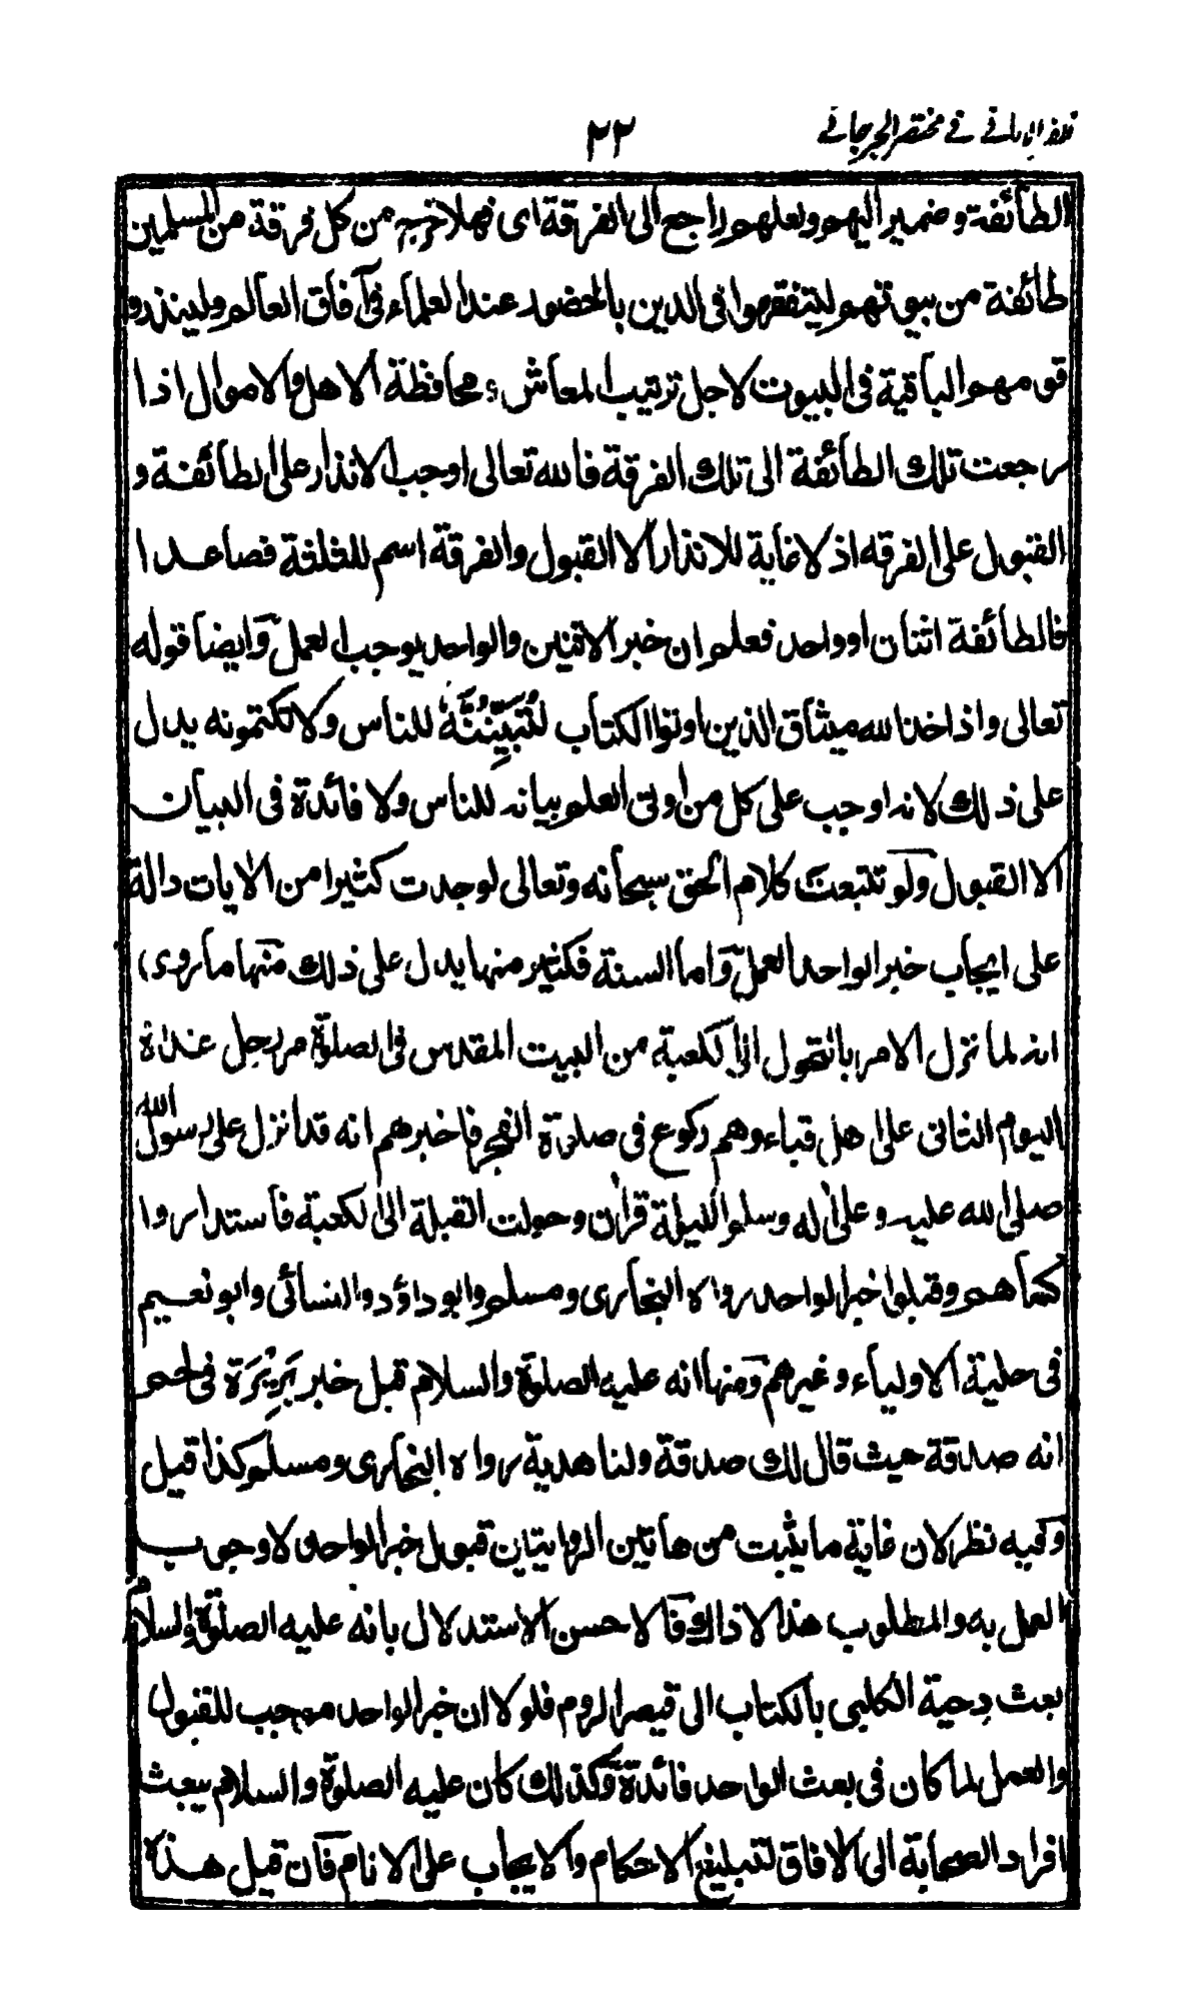 ظفر الاماني في مختصر الجرجاني
٢٢
الطائفة وضمير اليهم ولعلهم راجع الى الفرقة اى فهلا خرج من كل فرقة من المسلمين
طائفة من بيوتهم ليتفقهوا فى الدين بالحضور عند العلماء فى آفاق العالم ولينذروا
قومهم الباقية فى البيوت لاجل ترتيب المعاش ومحافظة الاهل والاموال اذا
رجعت تلك الطائفة الى تلك الفرقة فالله تعالى اوجب الانذار على الطائفة و
القبول على الفرقه اذ لا غاية للانذار الا القبول والفرقة اسم للثلثة فصاعدا
فالطائفة اثنان او واحد فعلم ان خبر الاثنين والواحد يوجب العمل وايضا قوله
تعالى واذ اخذ الله ميثاق الذين اوتوا الكتاب لَتُبَيِّنُنَّهُ للناس ولا تكتمونه يدل
على ذلك لانه اوجب على كل من اوتى العلم بيانه للناس ولا فائدة فى البيان
الا القبول ولو تتبعت كلام الحق سبحانه وتعالى لوجدت كثيرا من الايات دالة
على ايجاب خبر الواحد العمل واما السنة فكثير منها يدل على ذلك منها ما روى
انه لما نزل الامر بالتحول الى الكعبة من البيت المقدس فى الصلوة مر رجل غداة
اليوم الثانى على اهل قباء وهم ركوع فى صلوة الفجر فاخبرهم انه قد انزل على رسول الله
صلى الله عليه وعلى اله وسلم الليلة قران وحولت القبلة الى الكعبة فاستداروا
كما هم وقبلوا خبر الواحد رواه البخارى ومسلم وابو داؤد والنسائى وابو نعيم
فى حلية الاولياء وغيرهم ومنها انه عليه الصلوة والسلام قبل خبر بَرِيْرَة فى لحم
انه صدقة حيث قال لك صدقة ولنا هدية رواه البخارى ومسلم كذا قيل
وفيه نظر لان غاية ما يثبت من هاتين الروايتين قبول خبر الواحد لا وجوب
العمل به والمطلوب هذا لا ذاك فالاحسن الاستدلال بانه عليه الصلوة والسلام
بعث دحية الكلبى بالكتاب الى قيصر الروم فلو لا ان خبر الواحد موجب للقبول
والعمل لما كان فى بعث الواحد فائدة وكذلك كان عليه الصلوة والسلام يبعث
افراد الصحابة الى الافاق لتبليغ الاحكام والايجاب على الانام فان قيل هذه